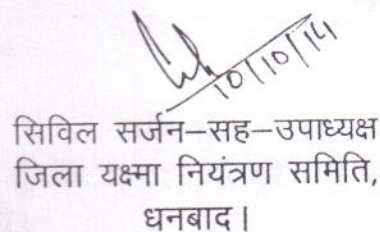 10/10/14
सिविल सर्जन–सह–उपाध्यक्ष
जिला यक्ष्मा नियंत्रण समिति,
धनबाद।